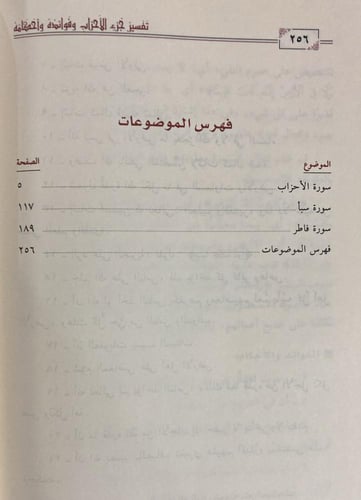 تفسير جزء الأحزاب وفوائده وأحكامه
٢٥٦
فهرس الموضوعات
الموضوع الصفحة
سورة الأحزاب ٥
سورة سبأ ١١٧
سورة فاطر ١٨٩
فهرس الموضوعات ٢٥٦